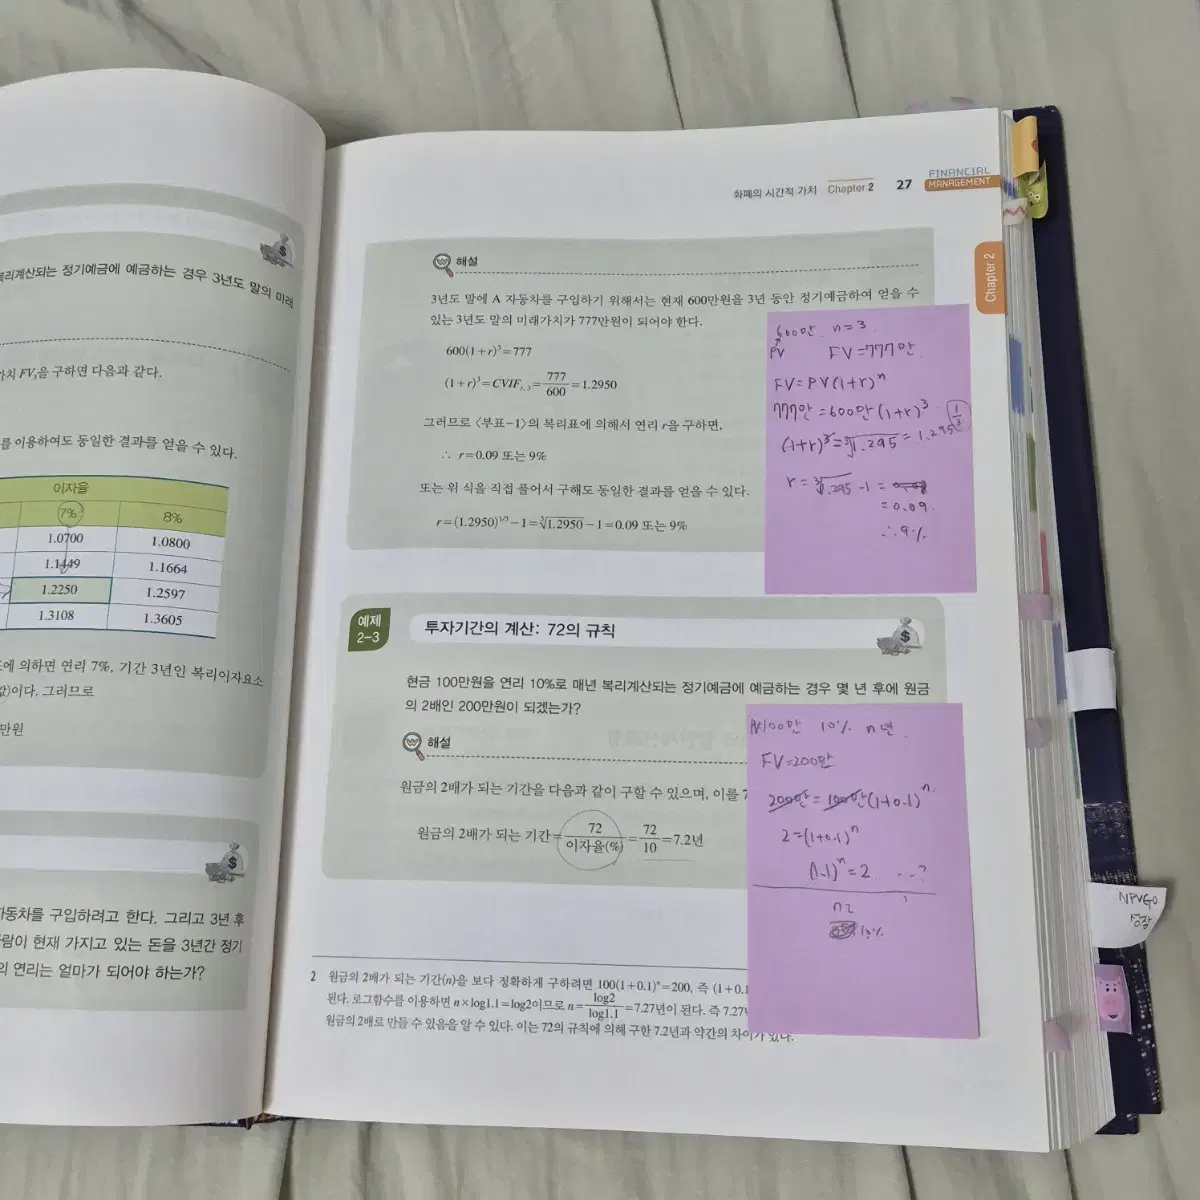 복리계산되는 정기예금에 예금하는 경우 3년도 말의 미래
가치 FV₃을 구하면 다음과 같다.
를 이용하여도 동일한 결과를 얻을 수 있다.
이자율
7% 8%
1.0700 1.0800
1.1449 1.1664
1.2250 1.2597
1.3108 1.3605
에 의하면 연리 7%, 기간 3년인 복리이자요소
이다. 그러므로
만원
자동차를 구입하려고 한다. 그리고 3년 후
사람이 현재 가지고 있는 돈을 3년간 정기
의 연리는 얼마가 되어야 하는가?
화폐의 시간적 가치 Chapter 2 27 FINANCIAL MANAGEMENT
Chapter 2
해설
3년도 말에 A 자동차를 구입하기 위해서는 현재 600만원을 3년 동안 정기예금하여 얻을 수
있는 3년도 말의 미래가치가 777만원이 되어야 한다.
600(1+r)³=777
(1+r)³=CVIFᵣ,₃=777/600=1.2950
그러므로 <부표-1>의 복리표에 의해서 연리 r을 구하면,
∴ r=0.09 또는 9%
또는 위 식을 직접 풀어서 구해도 동일한 결과를 얻을 수 있다.
r=(1.2950)^1/3-1=∛1.2950-1=0.09 또는 9%
600만 n=3
PV FV=777만
FV=PV(1+r)ⁿ
777만=600만(1+r)³
(1+r)³=∛1.295=1.295^1/3
r=∛1.295-1=
=0.09
∴9%
예제
2-3
투자기간의 계산: 72의 규칙
현금 100만원을 연리 10%로 매년 복리계산되는 정기예금에 예금하는 경우 몇 년 후에 원금
의 2배인 200만원이 되겠는가?
해설
원금의 2배가 되는 기간을 다음과 같이 구할 수 있으며, 이를 7
원금의 2배가 되는 기간=72/이자율(%)=72/10=7.2년
PV100만 10% n년
FV=200만
200만=100만(1+0.1)ⁿ
2=(1+0.1)ⁿ
(1.1)ⁿ=2 ...?
2 원금의 2배가 되는 기간(n)을 보다 정확하게 구하려면 100(1+0.1)ⁿ=200, 즉 (1+0.1
된다. 로그함수를 이용하면 n×log1.1=log2이므로 n=log2/log1.1=7.27년이 된다. 즉 7.27
원금의 2배로 만들 수 있음을 알 수 있다. 이는 72의 규칙에 의해 구한 7.2년과 약간의 차이가 있다.
NPVGO
성장